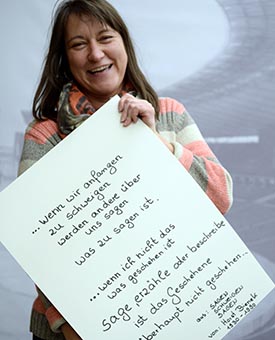 ... wenn wir anfangen
zu schweigen
werden andere über
uns sagen
was zu sagen ist.
... wenn ich nicht das
was geschehen ist
sage erzähle oder beschreibe
ist das Geschehene
überhaupt nicht geschehen...
aus: SAGEN
SCHWEIGEN
SAGEN
von: Horst Bienek
1930 - 1990